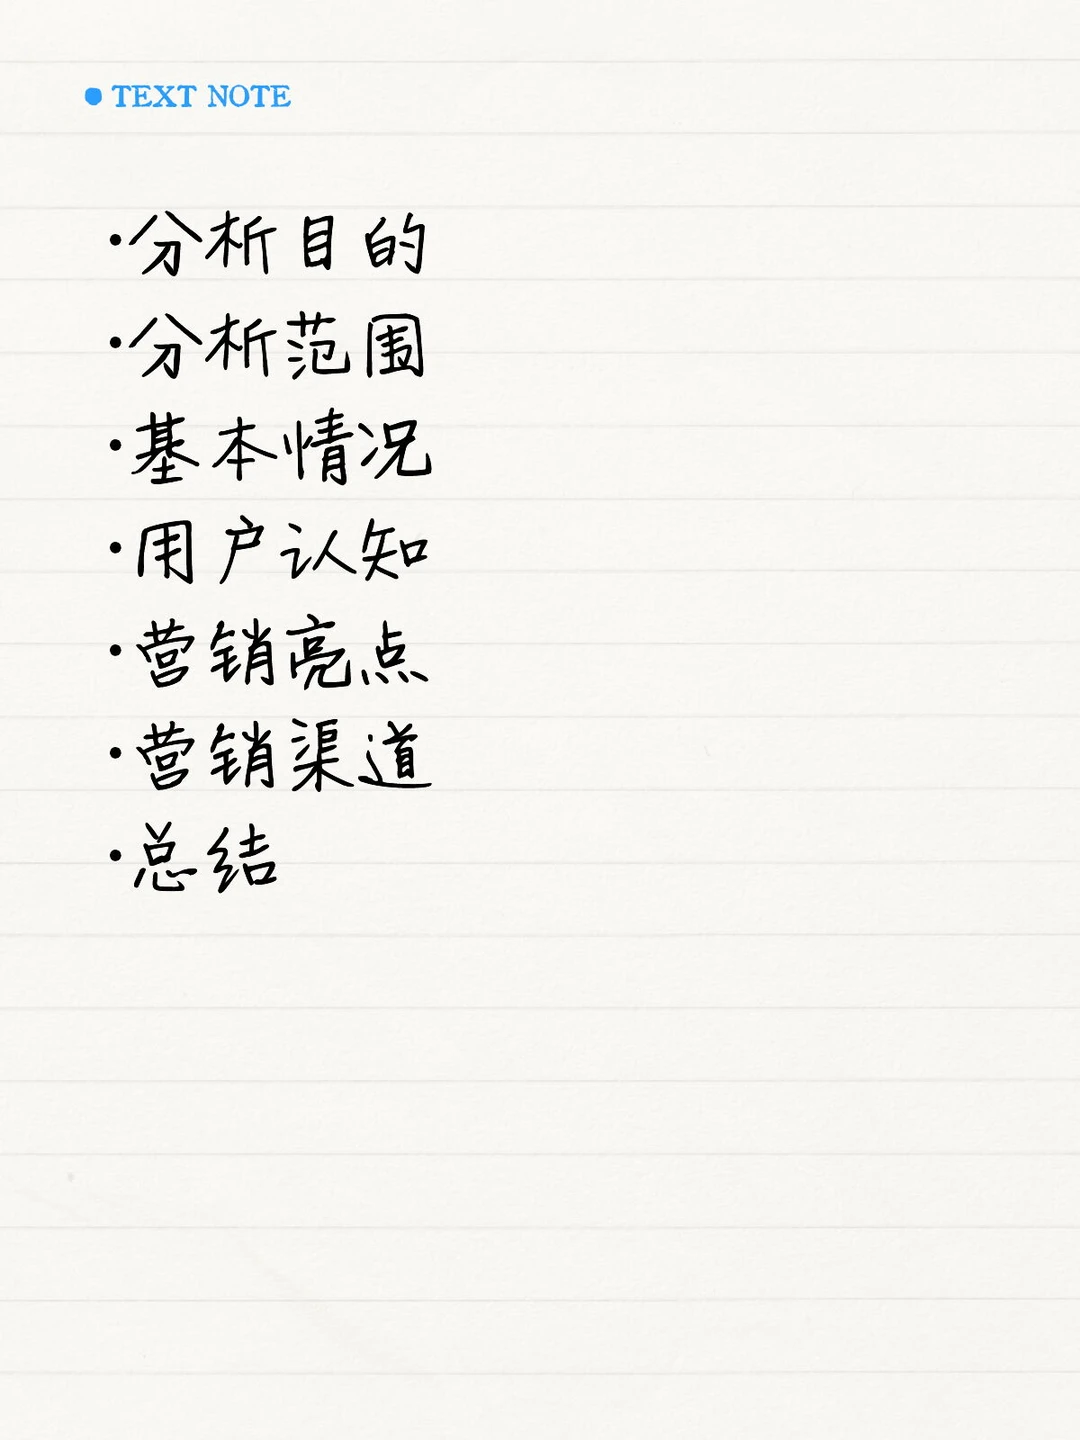 ● TEXT NOTE
·分析目的
·分析范围
·基本情况
·用户认知
·营销亮点
·营销渠道
·总结